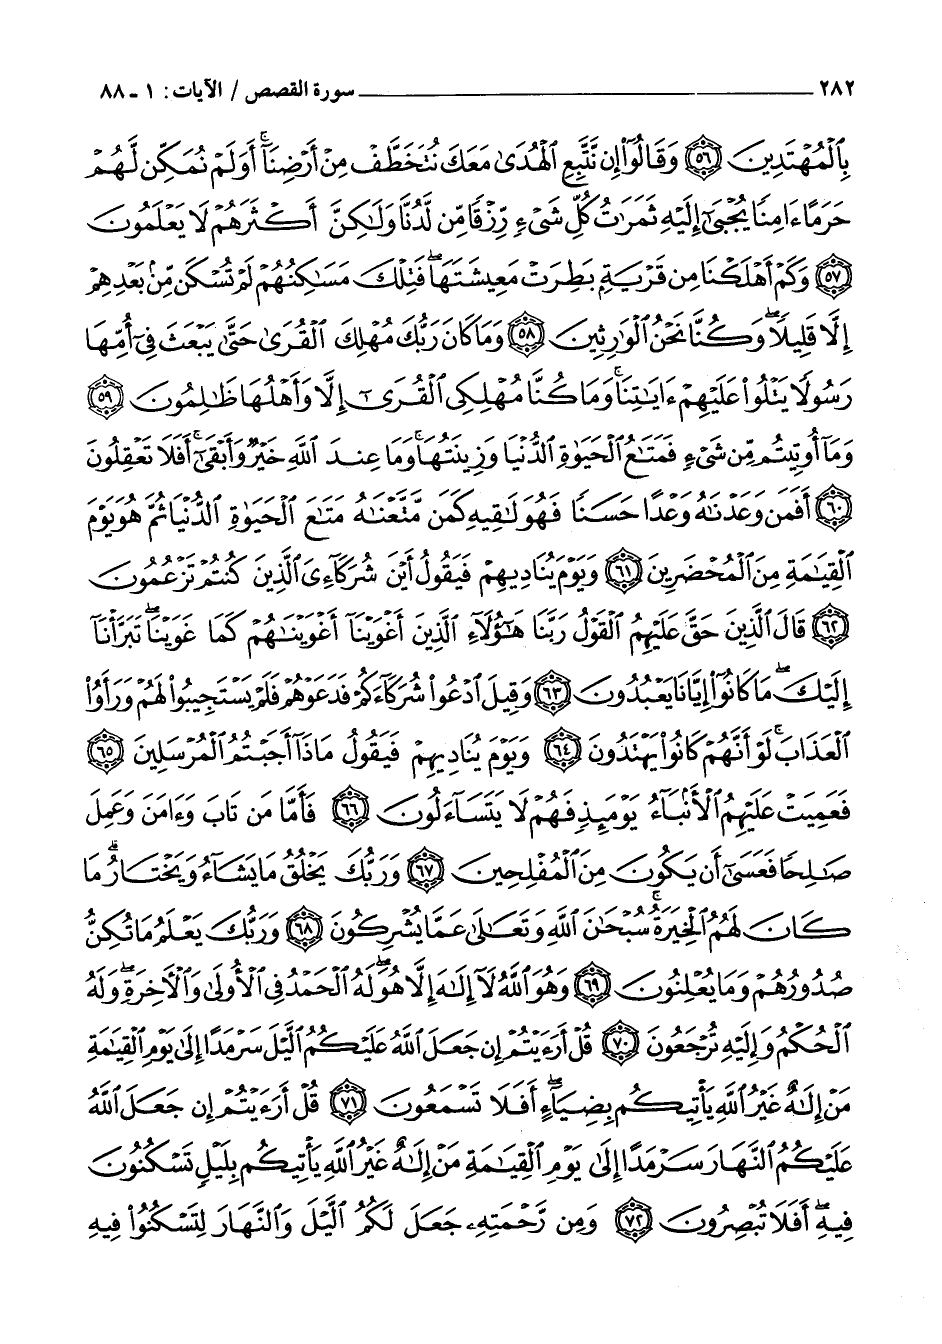 ٢٨٢ ــــــــــــــــــــــــــــــــــــــــــــــــ سورة القصص / الآيات: ١ - ٨٨
بِٱلْمُهْتَدِينَ ٥٦ وَقَالُوٓا۟ إِن نَّتَّبِعِ ٱلْهُدَىٰ مَعَكَ نُتَخَطَّفْ مِنْ أَرْضِنَآ ۚ أَوَلَمْ نُمَكِّن لَّهُمْ
حَرَمًا ءَامِنًا يُجْبَىٰٓ إِلَيْهِ ثَمَرَٰتُ كُلِّ شَىْءٍ رِّزْقًا مِّن لَّدُنَّا وَلَٰكِنَّ أَكْثَرَهُمْ لَا يَعْلَمُونَ
٥٧ وَكَمْ أَهْلَكْنَا مِن قَرْيَةٍۭ بَطِرَتْ مَعِيشَتَهَا ۖ فَتِلْكَ مَسَٰكِنُهُمْ لَمْ تُسْكَن مِّنۢ بَعْدِهِمْ
إِلَّا قَلِيلًا ۖ وَكُنَّا نَحْنُ ٱلْوَٰرِثِينَ ٥٨ وَمَا كَانَ رَبُّكَ مُهْلِكَ ٱلْقُرَىٰ حَتَّىٰ يَبْعَثَ فِىٓ أُمِّهَا
رَسُولًا يَتْلُوا۟ عَلَيْهِمْ ءَايَٰتِنَا ۚ وَمَا كُنَّا مُهْلِكِى ٱلْقُرَىٰٓ إِلَّا وَأَهْلُهَا ظَٰلِمُونَ ٥٩
وَمَآ أُوتِيتُم مِّن شَىْءٍ فَمَتَٰعُ ٱلْحَيَوٰةِ ٱلدُّنْيَا وَزِينَتُهَا ۚ وَمَا عِندَ ٱللَّهِ خَيْرٌ وَأَبْقَىٰٓ ۚ أَفَلَا تَعْقِلُونَ
٦٠ أَفَمَن وَعَدْنَٰهُ وَعْدًا حَسَنًا فَهُوَ لَٰقِيهِ كَمَن مَّتَّعْنَٰهُ مَتَٰعَ ٱلْحَيَوٰةِ ٱلدُّنْيَا ثُمَّ هُوَ يَوْمَ
ٱلْقِيَٰمَةِ مِنَ ٱلْمُحْضَرِينَ ٦١ وَيَوْمَ يُنَادِيهِمْ فَيَقُولُ أَيْنَ شُرَكَآءِىَ ٱلَّذِينَ كُنتُمْ تَزْعُمُونَ
٦٢ قَالَ ٱلَّذِينَ حَقَّ عَلَيْهِمُ ٱلْقَوْلُ رَبَّنَا هَٰٓؤُلَآءِ ٱلَّذِينَ أَغْوَيْنَآ أَغْوَيْنَٰهُمْ كَمَا غَوَيْنَا ۖ تَبَرَّأْنَآ
إِلَيْكَ ۖ مَا كَانُوٓا۟ إِيَّانَا يَعْبُدُونَ ٦٣ وَقِيلَ ٱدْعُوا۟ شُرَكَآءَكُمْ فَدَعَوْهُمْ فَلَمْ يَسْتَجِيبُوا۟ لَهُمْ وَرَأَوُا۟
ٱلْعَذَابَ ۚ لَوْ أَنَّهُمْ كَانُوا۟ يَهْتَدُونَ ٦٤ وَيَوْمَ يُنَادِيهِمْ فَيَقُولُ مَاذَآ أَجَبْتُمُ ٱلْمُرْسَلِينَ ٦٥
فَعَمِيَتْ عَلَيْهِمُ ٱلْأَنۢبَآءُ يَوْمَئِذٍ فَهُمْ لَا يَتَسَآءَلُونَ ٦٦ فَأَمَّا مَن تَابَ وَءَامَنَ وَعَمِلَ
صَٰلِحًا فَعَسَىٰٓ أَن يَكُونَ مِنَ ٱلْمُفْلِحِينَ ٦٧ وَرَبُّكَ يَخْلُقُ مَا يَشَآءُ وَيَخْتَارُ ۗ مَا
كَانَ لَهُمُ ٱلْخِيَرَةُ ۚ سُبْحَٰنَ ٱللَّهِ وَتَعَٰلَىٰ عَمَّا يُشْرِكُونَ ٦٨ وَرَبُّكَ يَعْلَمُ مَا تُكِنُّ
صُدُورُهُمْ وَمَا يُعْلِنُونَ ٦٩ وَهُوَ ٱللَّهُ لَآ إِلَٰهَ إِلَّا هُوَ ۖ لَهُ ٱلْحَمْدُ فِى ٱلْأُولَىٰ وَٱلْءَاخِرَةِ ۖ وَلَهُ
ٱلْحُكْمُ وَإِلَيْهِ تُرْجَعُونَ ٧٠ قُلْ أَرَءَيْتُمْ إِن جَعَلَ ٱللَّهُ عَلَيْكُمُ ٱلَّيْلَ سَرْمَدًا إِلَىٰ يَوْمِ ٱلْقِيَٰمَةِ
مَنْ إِلَٰهٌ غَيْرُ ٱللَّهِ يَأْتِيكُم بِضِيَآءٍ ۖ أَفَلَا تَسْمَعُونَ ٧١ قُلْ أَرَءَيْتُمْ إِن جَعَلَ ٱللَّهُ
عَلَيْكُمُ ٱلنَّهَارَ سَرْمَدًا إِلَىٰ يَوْمِ ٱلْقِيَٰمَةِ مَنْ إِلَٰهٌ غَيْرُ ٱللَّهِ يَأْتِيكُم بِلَيْلٍ تَسْكُنُونَ
فِيهِ ۖ أَفَلَا تُبْصِرُونَ ٧٢ وَمِن رَّحْمَتِهِۦ جَعَلَ لَكُمُ ٱلَّيْلَ وَٱلنَّهَارَ لِتَسْكُنُوا۟ فِيهِ